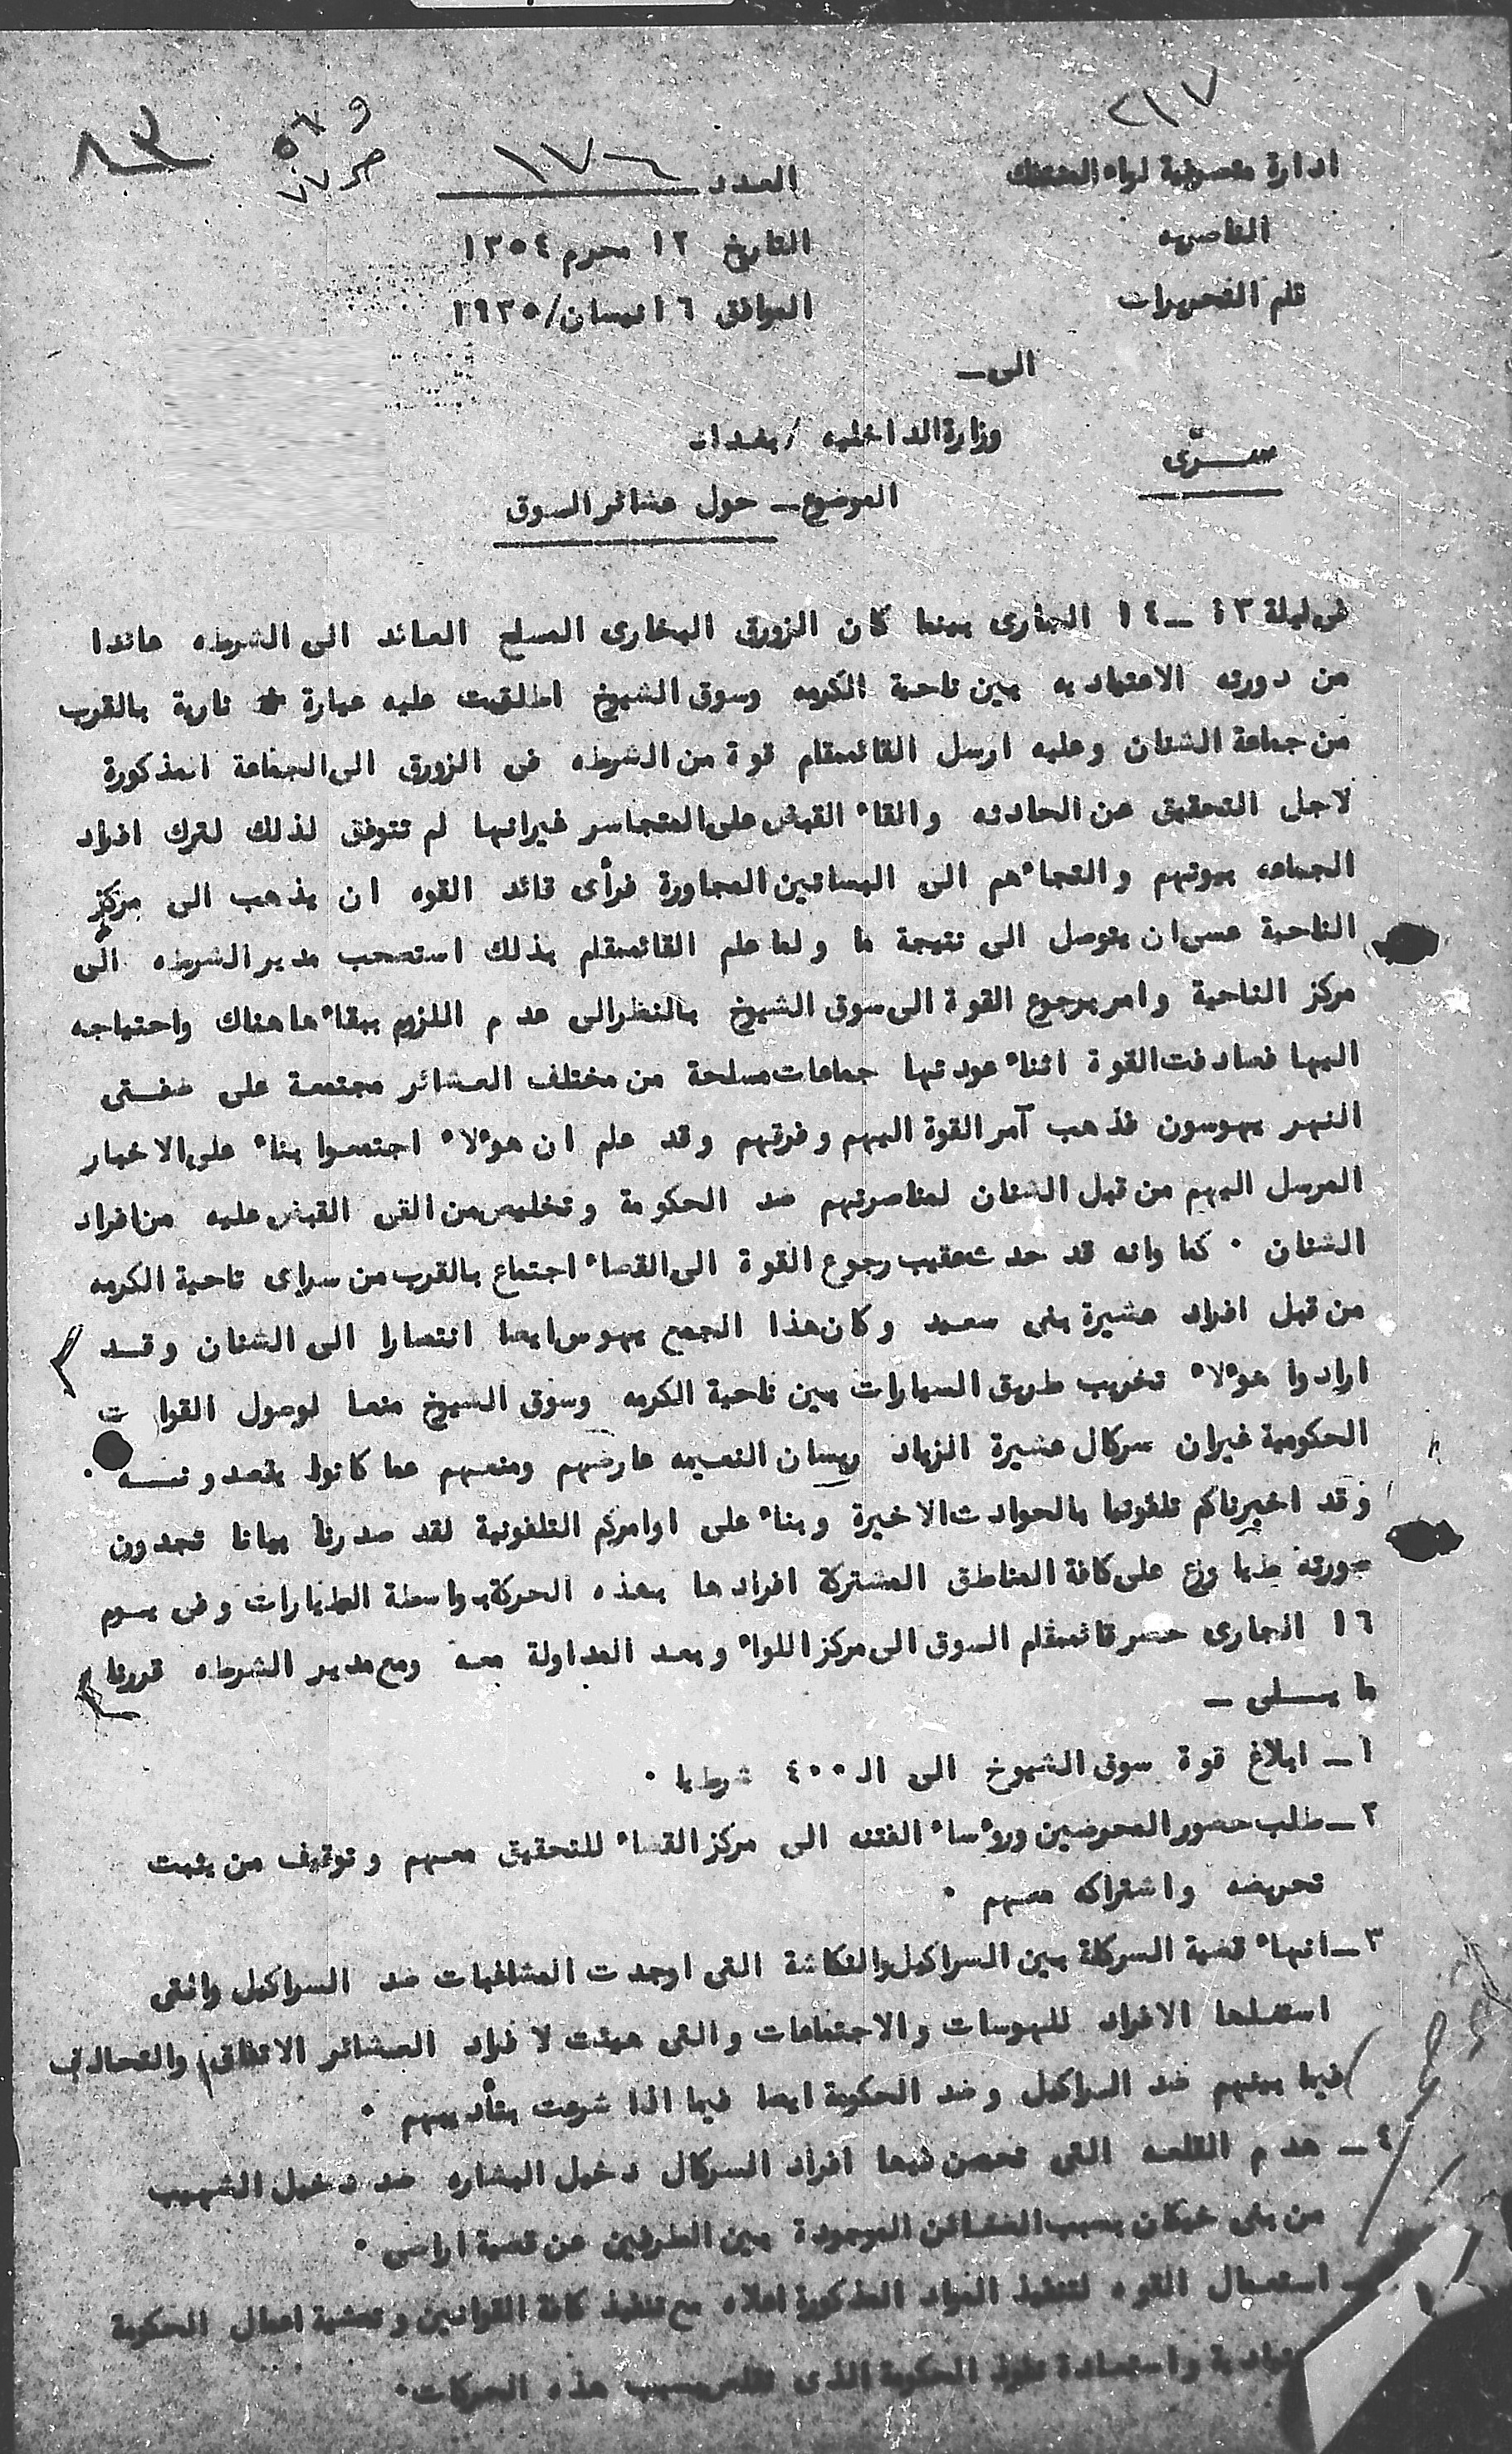 ٢١٧
ادارة متصرفية لواء المنتفك
العدد ١٧٦
و ٥٧
ص ٧٧
٨٣
الناصريه
التاريخ ١٢ محرم ١٣٥٤
قلم التحريرات
الموافق ١٦نيسان/١٩٣٥
الى ـ
وزارة الداخليه / بغداد
سـرّى
الموضوع ـ حول عشائر السوق
فى ليلة ١٣ ـ ١٤ الجارى بينما كان الزورق البخارى المسلح العائد الى الشرطه عائدا
من دورته الاعتياديه بين ناحية الكرمه وسوق الشيوخ اطلقت عليه عيارة نارية بالقرب
من جماعة الشنان وعليه ارسل القائممقام قوة من الشرطه فى الزورق الى الجماعة المذكورة
لاجل التحقيق عن الحادثه والقاء القبض على المتجاسر غيرانها لم تتوفق لذلك لترك افراد
الجماعه بيوتهم والتجاءهم الى البساتين المجاورة فرأى قائد القوه ان يذهب الى مركز
الناحية عسى ان يتوصل الى نتيجة ما ولما علم القائممقام بذلك استصحب مدير الشرطه الى
مركز الناحية وامر برجوع القوة الى سوق الشيوخ بالنظرالى عدم اللزوم ببقاءها هناك واحتياجه
اليها فصادفت القوة اثناء عودتها جماعات مسلحة من مختلف العشائر مجتمعة على ضفتى
النهر يهوسون فذهب آمر القوة اليهم وفرقهم وقد علم ان هوءلاء اجتمعوا بناء على الاخبار
المرسل اليهم من قبل الشنان لمناصرتهم ضد الحكومة وتخليص من القى القبض عليه من افراد
الشنان ٠ كما وانه قد حدث عقيب رجوع القوة الى القضاء اجتماع بالقرب من سراى ناحية الكرمه
من قبل افراد عشيرة بنى سعيد وكان هذا الجمع يهوس ايضا انتصارا الى الشنان وقـد
ارادوا هوءلاء تخريب طريق السيارات بين ناحية الكرمه وسوق الشيوخ منعا لوصول القوات
الحكومية غيران سركال عشيرة الزياد ريسان النعيمه عارضهم ومنعهم عما كانوا يقصدونـه ٠
وقد اخبرناكم تلفونيا بالحوادث الاخيرة وبناء على اوامركم التلفونية لقد صدرنا بيانا تجدون
صورته طيا وزع على كافة المناطق المشتركة افرادها بهذه الحركة بواسطة الطيارات وفى يـوم
١٦ الجارى حضر قائممقام السوق الى مركز اللواء وبعد المداولة معه ومع مدير الشرطه قررنا
ما يـلى ـ
١ ـ ابلاغ قوة سوق الشيوخ الى الـ ٤٠٠ شرطيا ٠
٢ ـ طلب حضور المحرضين وروءساء الفتنه الى مركز القضاء للتحقيق معهم وتوقيف من يثبت
تحريضه واشتراكه معهم ٠
٣ ـ انهاء قضية السركلة بين السراكيل والنكاشة التى اوجدت المشاغبات ضد السراكيل والتى
استغلها الافراد للهوسات والاجتماعات والتى هيئت لافراد العشائر الاتفاق والتحالف
فيما بينهم ضد السراكيل وضد الحكومة ايضا فيما اذا شرعت بتأديبهم ٠
٤ ـ هدم القلعه التى تحصن فيها افراد السركال دخيل البشاره ضد دخيل الشهيب
من بنى خيكان بسبب الضغائن الموجودة بين الطرفين عن قضية اراضى ٠
ـ استعمال القوه لتنفيذ المواد المذكورة اعلاه مع تنفيذ كافة القوانين وتمشية اعمال الحكومة
واستعادة نفوذ الحكومة الذى تقلص بسبب هذه الحركات ٠